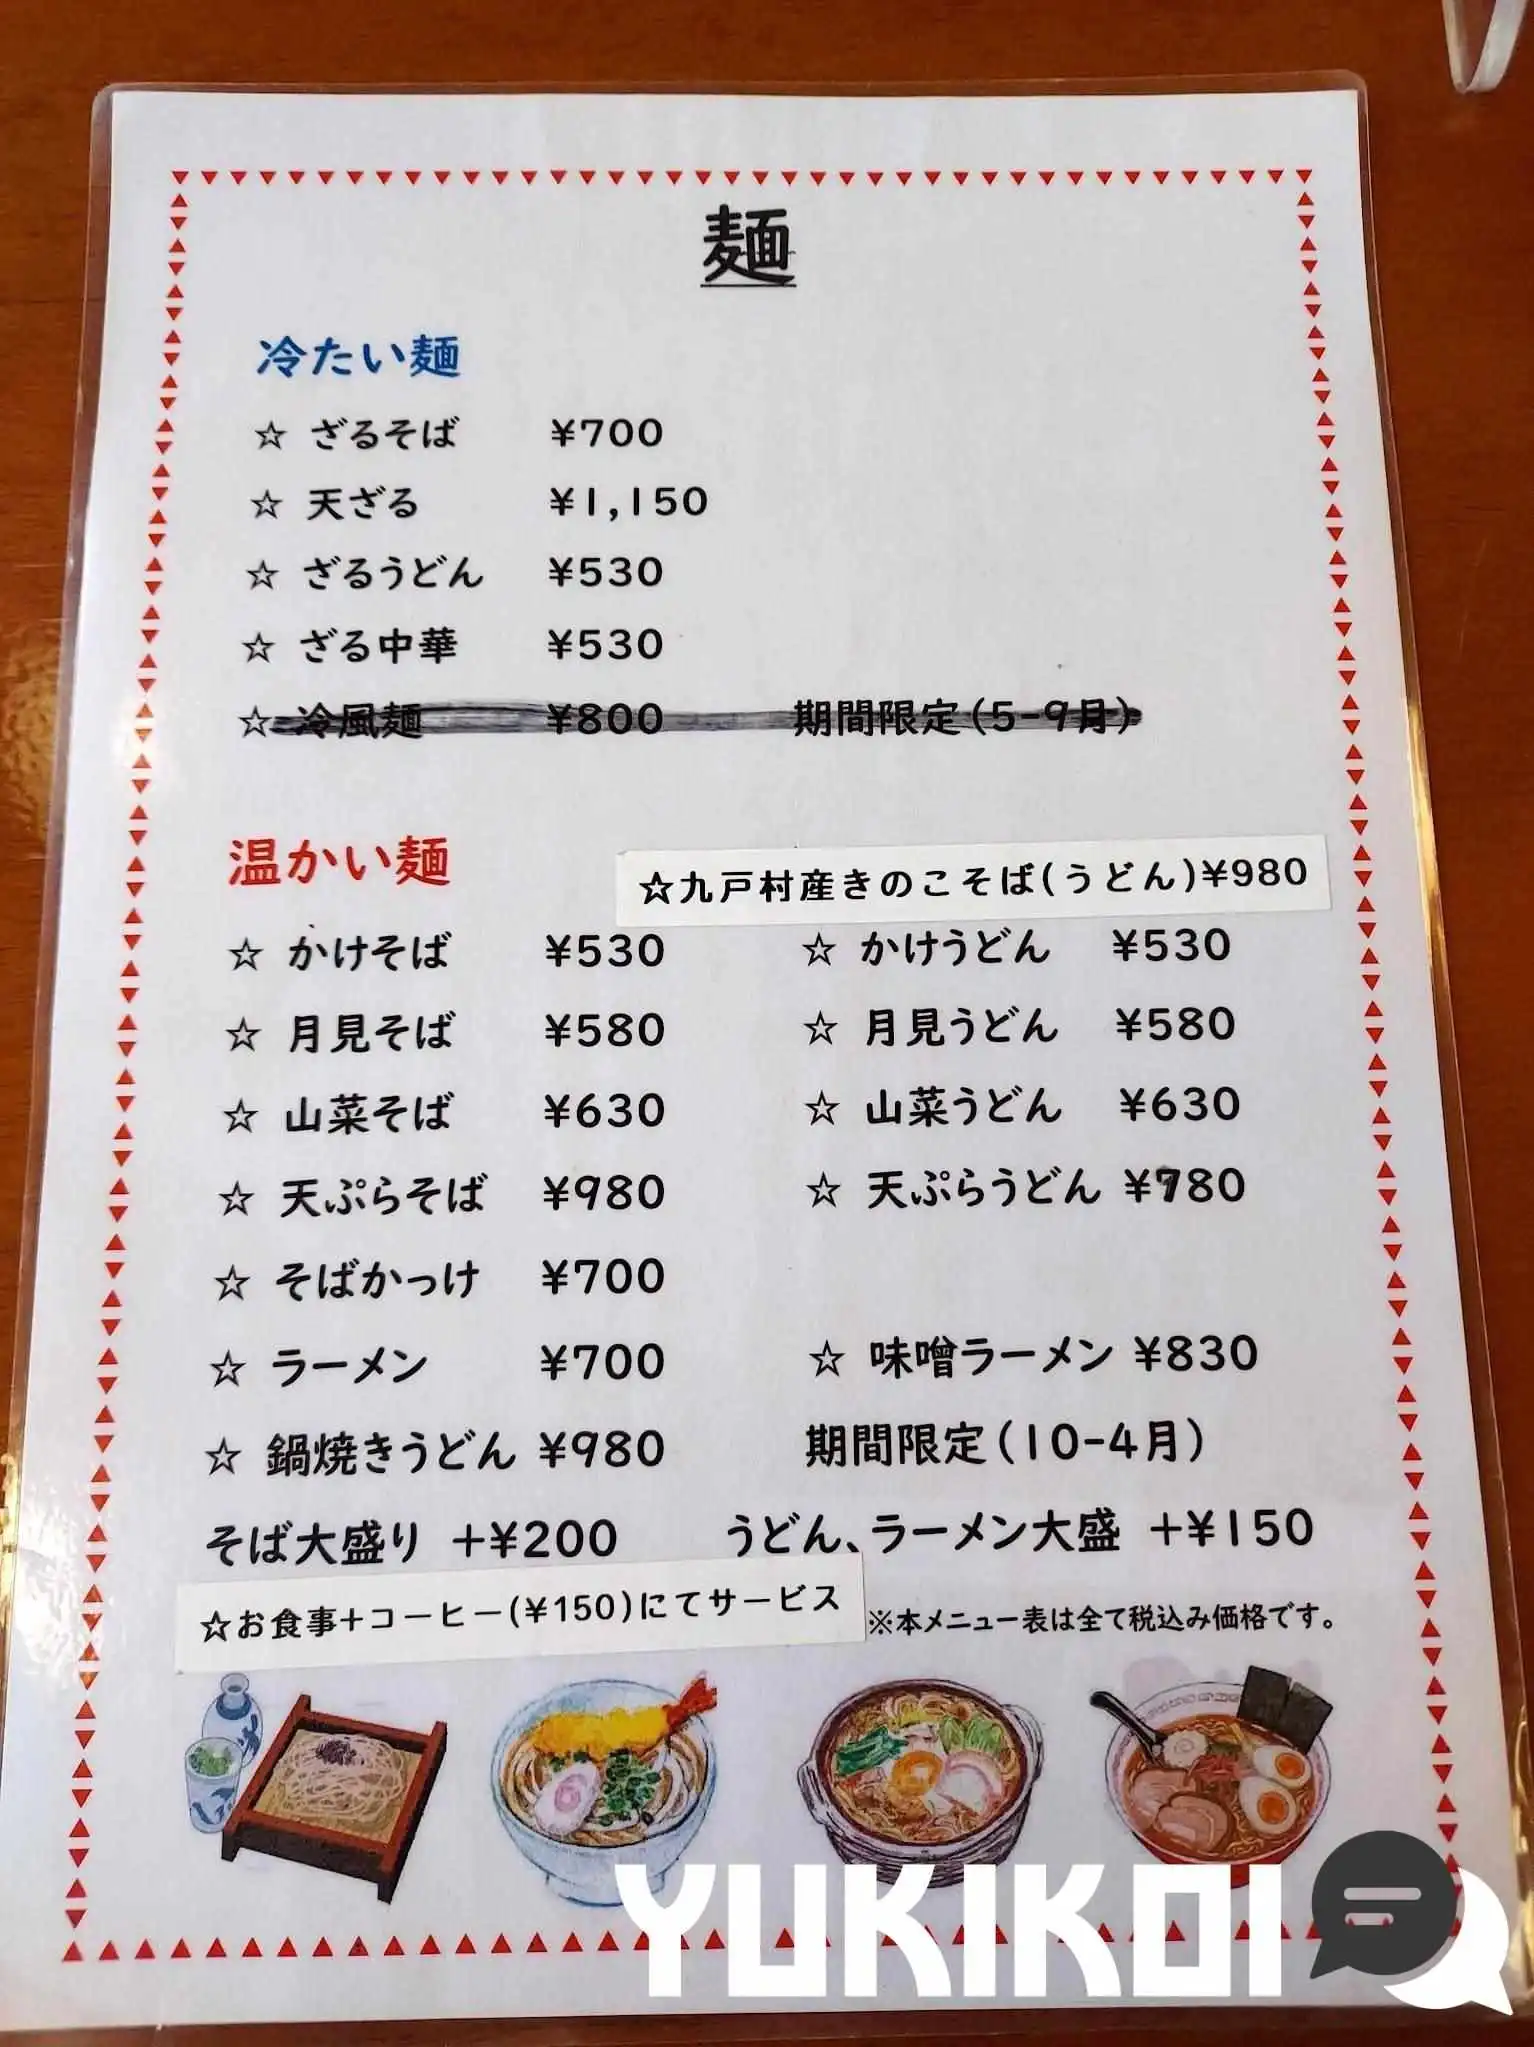 麺
冷たい麺
☆ ざるそば ¥700
☆ 天ざる ¥1,150
☆ ざるうどん ¥530
☆ ざる中華 ¥530
☆ 冷風麺 ¥800 期間限定(5-9月)
温かい麺
☆九戸村産きのこそば(うどん)¥980
☆ かけそば ¥530 ☆ かけうどん ¥530
☆ 月見そば ¥580 ☆ 月見うどん ¥580
☆ 山菜そば ¥630 ☆ 山菜うどん ¥630
☆ 天ぷらそば ¥980 ☆ 天ぷらうどん
☆ そばかっけ ¥700
☆ ラーメン ¥700 ☆ 味噌ラーメン ¥830
☆ 鍋焼きうどん ¥980 期間限定(10-4月)
そば大盛り +¥200 うどん、ラーメン大盛 +¥150
☆お食事+コーヒー(¥150)にてサービス
※本メニュー表は全て税込み価格です。
YUKIKOI